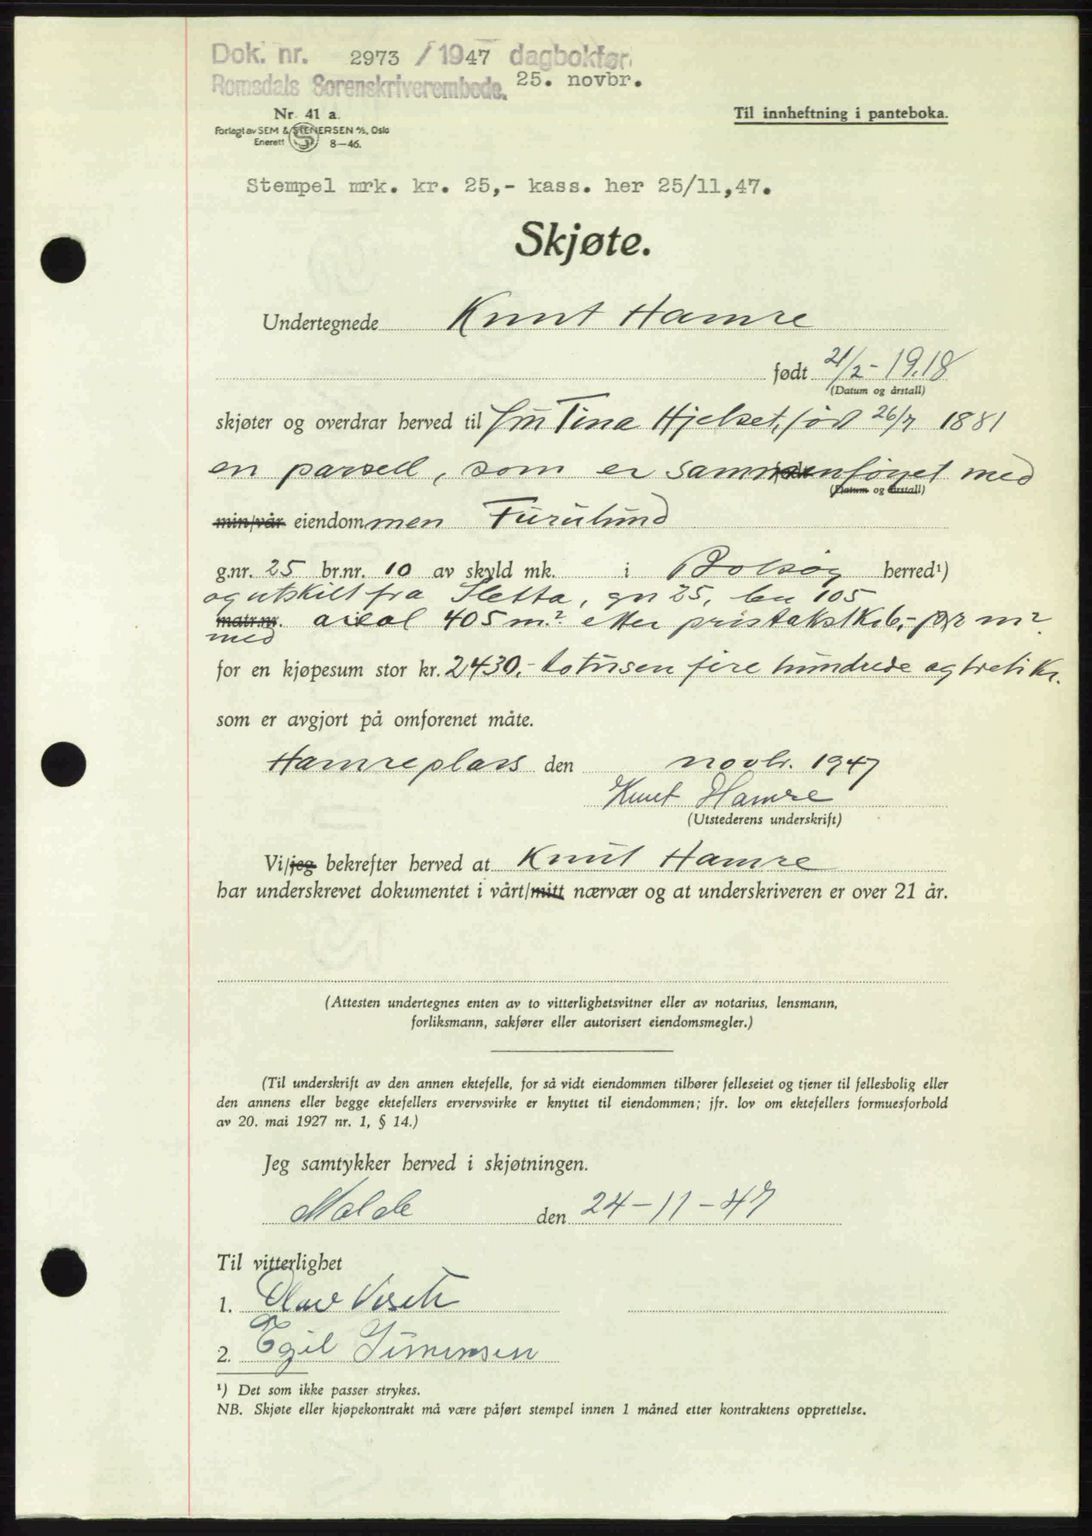 Dok. nr. 2973 / 1947 dagbokfør
Romsdals Sorenskriverembede. 25. novbr.
Nr. 41 a.
Forlagt av SEM & STENERSEN A/S, Oslo
Enerett 8-46.
Til innheftning i panteboka.
Stempel mrk. kr. 25,- kass. her 25/11,47.
Skjøte.
Undertegnede Knut Hamre
født 21/2 - 1918
(Datum og årstall)
skjøter og overdrar herved til fru Tina Hjelset, född 26/7 1881
en parsell, som er sammenføyet med
(Datum og årstall)
min/vår eiendommen Furulund
g.nr. 25 br.nr. 10 av skyld mk. i Bolsøy herred¹)
og utskilt fra Sletta, gn 25, bn 105
matr.nr. areal 405 m² etter pristakst kr. 6,- pr m²
med
for en kjøpesum stor kr. 2430,- totusen fire hundrede og treti kr.
som er avgjort på omforenet måte.
Hamreplass den novbr. 1947
Knut Hamre
(Utstederens underskrift)
Vi/jeg bekrefter herved at Knut Hamre
har underskrevet dokumentet i vårt/mitt nærvær og at underskriveren er over 21 år.
(Attesten undertegnes enten av to vitterlighetsvitner eller av notarius, lensmann,
forliksmann, sakfører eller autorisert eiendomsmegler.)
(Til underskrift av den annen ektefelle, for så vidt eiendommen tilhører felleseiet og tjener til fellesbolig eller
den annens eller begge ektefellers ervervsvirke er knyttet til eiendommen; jfr. lov om ektefellers formuesforhold
av 20. mai 1927 nr. 1, § 14.)
Jeg samtykker herved i skjøtningen.
Molde den 24-11-47
Til vitterlighet
1. Olav
2. Egil Simensen
¹) Det som ikke passer strykes.
NB. Skjøte eller kjøpekontrakt må være påført stempel innen 1 måned etter kontraktens opprettelse.